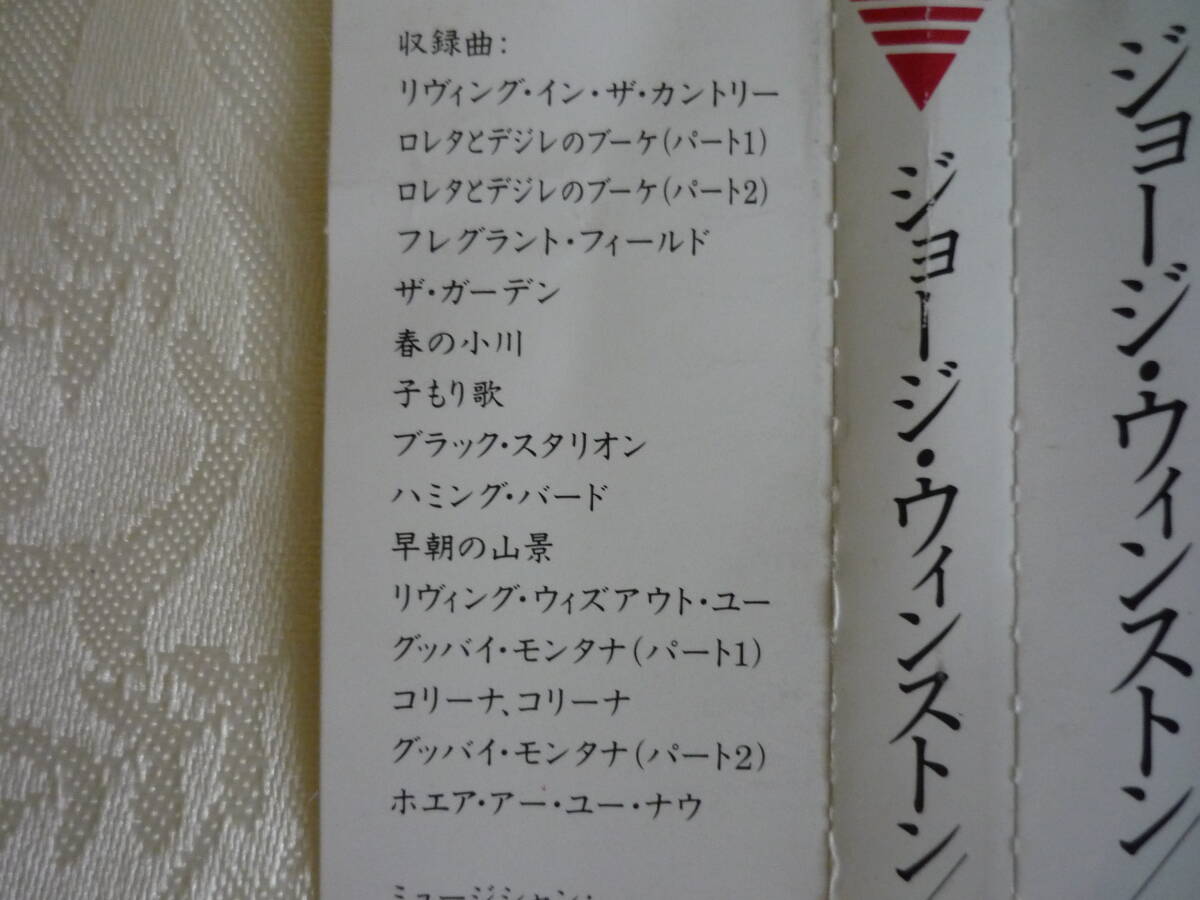 収録曲:
リヴィング・イン・ザ・カントリー
ロレタとデジレのブーケ(パート1)
ロレタとデジレのブーケ(パート2)
フレグラント・フィールド
ザ・ガーデン
春の小川
子もり歌
ブラック・スタリオン
ハミング・バード
早朝の山景
リヴィング・ウィズアウト・ユー
グッバイ・モンタナ(パート1)
コリーナ、コリーナ
グッバイ・モンタナ(パート2)
ホエア・アー・ユー・ナウ
ミュージシャン:
ジョージ・ウィンストン/
ジョージ・ウィンストン/